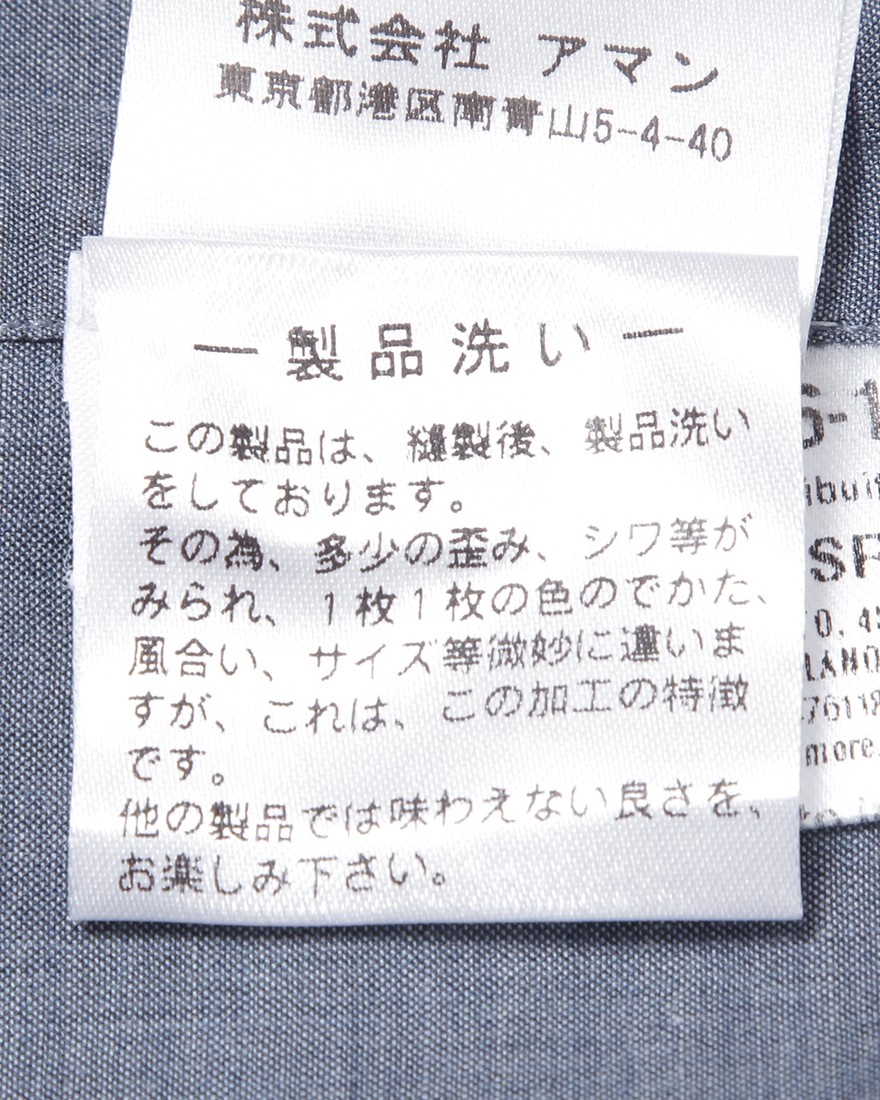 株式会社 アマン
東京都港区南青山5-4-40
— 製品洗い —
この製品は、縫製後、製品洗い
をしております。
その為、多少の歪み、シワ等が
みられ、1枚1枚の色のでかた、
風合い、サイズ等微妙に違いま
すが、これは、この加工の特徴
です。
他の製品では味わえない良さを、
お楽しみ下さい。
more.